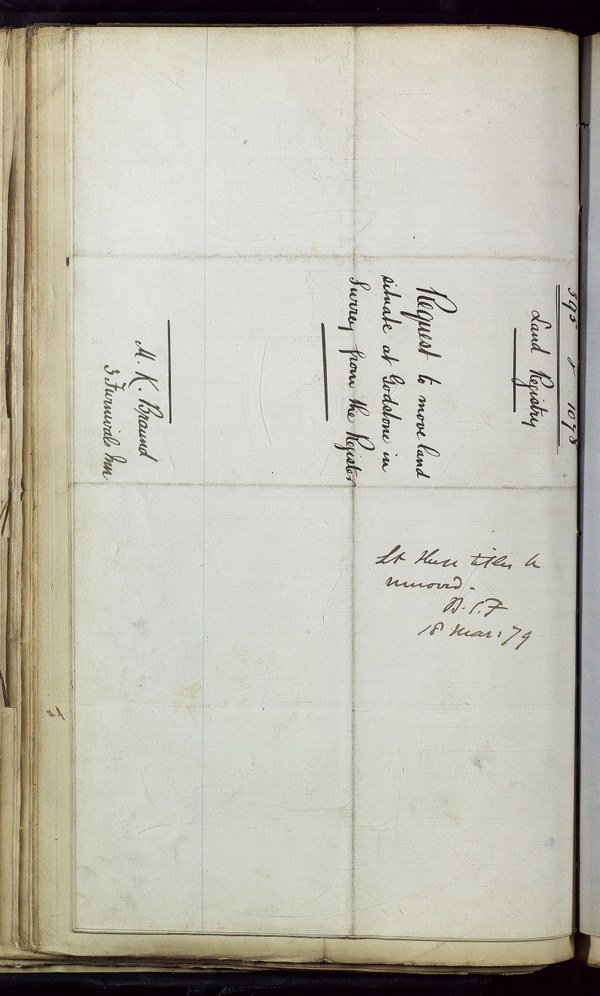 595 & 1098
Land Registry
Request to move land
situate at Godstone in
Surrey from the Register
M. K. Braund
3 Furnivals Inn
Let these titles be
removed.
B. S. F
18 Mar: 79